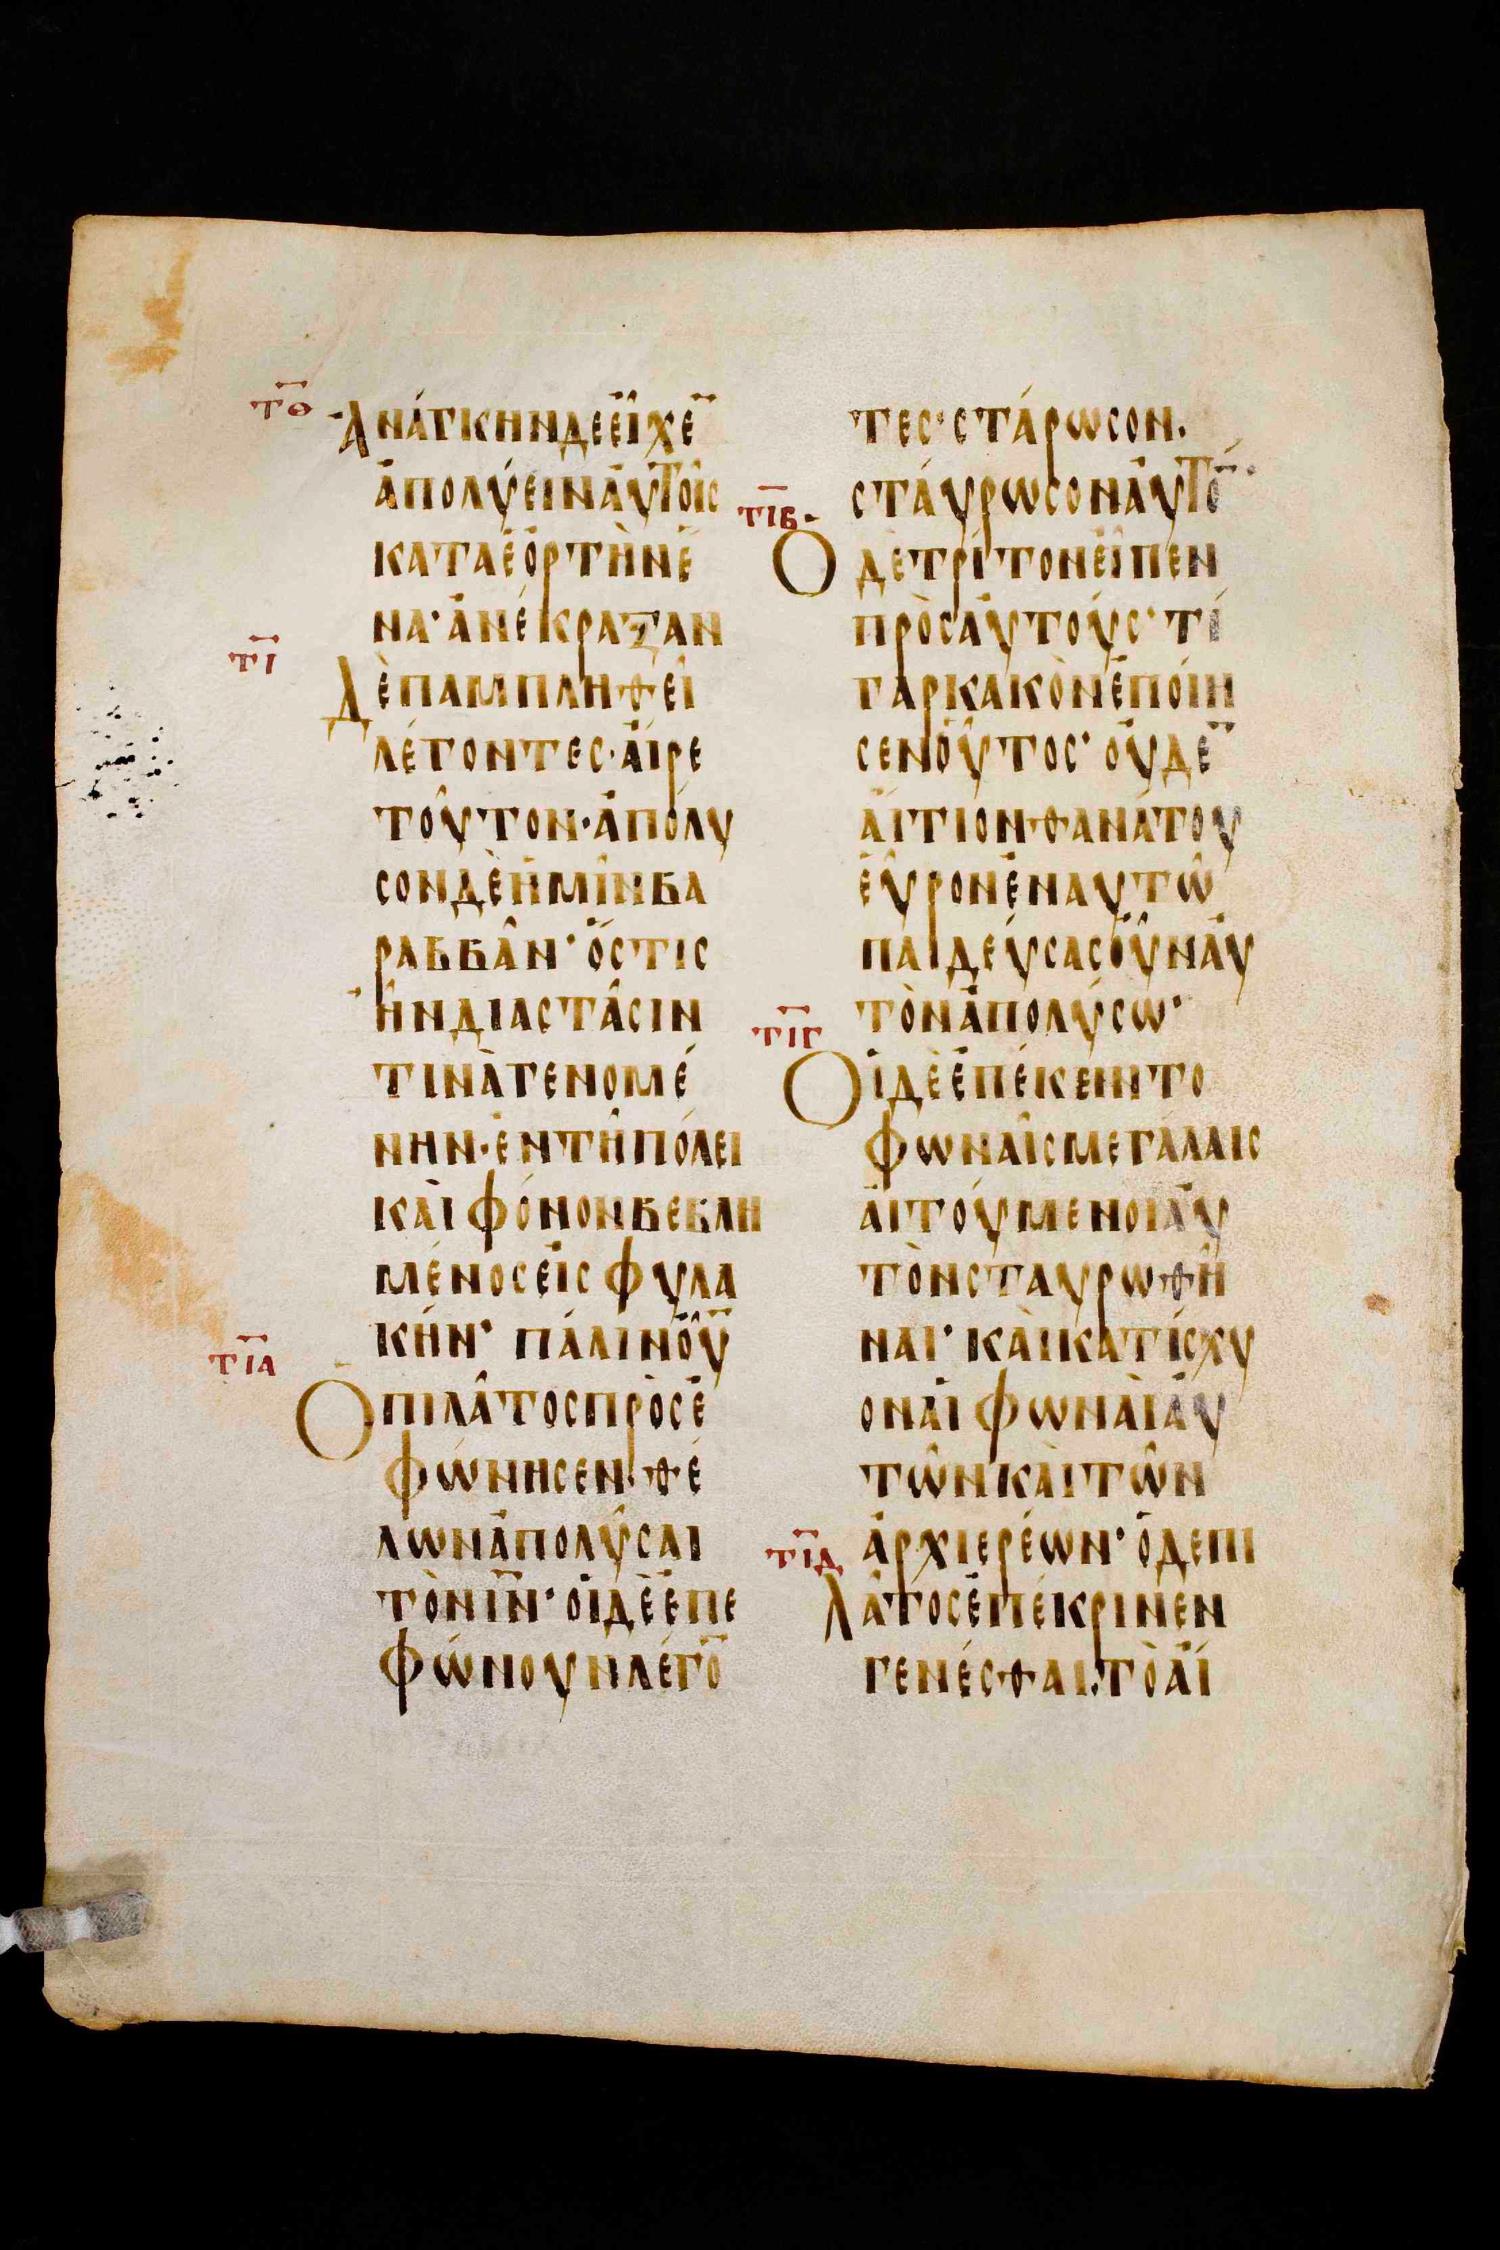 τθ
Ἀνάγκην δὲ εἶχε̄
ἀπολύειν αὐτοῖς
κατα ἑορτὴν ἕ
να· ἀνέκραξαν
τι
Δὲ παμπληθεὶ
λέγοντες· ἆιρε
τοῦτον· ἀπόλυ
σον δὲ ἡμῖν βα
ραββᾶν· ὅστις
ἦν δια στάσιν
τινὰ γενομέ
νην· ἐν τῆ πόλει
κὰι φόνον βεβλη
μένος εἰς φυλα
κήν· πάλιν οὖ̄
τια
Ὁ πιλᾶτος προσε
φώνησεν· θέ
λων ἀπολῦσαι
τὸν ιν̄· οἱ δὲ ἐπε
φώνουν λέγο̄
τες· στάρωσον·
σταύρωσον αὐτό̄·
τιβ
Ὁ δὲ τρίτον εἶπεν
πρὸς αὐτούς· τί
γαρ κακὸν ἐποίη
σεν οὗτος· οὐδε̄
ἄιτιον θανάτου
εὗρον ἐν αυτῶ
παιδεύσας οὖν αὐ
τὸν ἀπολύσω·
τιγ
Ὁι δὲ ἐπέκειντο
φωναῖς μεγάλαις
ἀιτούμενοι αὐ
τὸν σταυρωθῆ
ναι· κὰι κατίσχυ
ον ἁι φωνὰι ἀυ
τῶν κὰι τῶν
ἀρχιερέων· ὁ δε πι
τιδ
Λᾶτος ἐπέκρινεν
γενέσθαι· τὸ ἄι